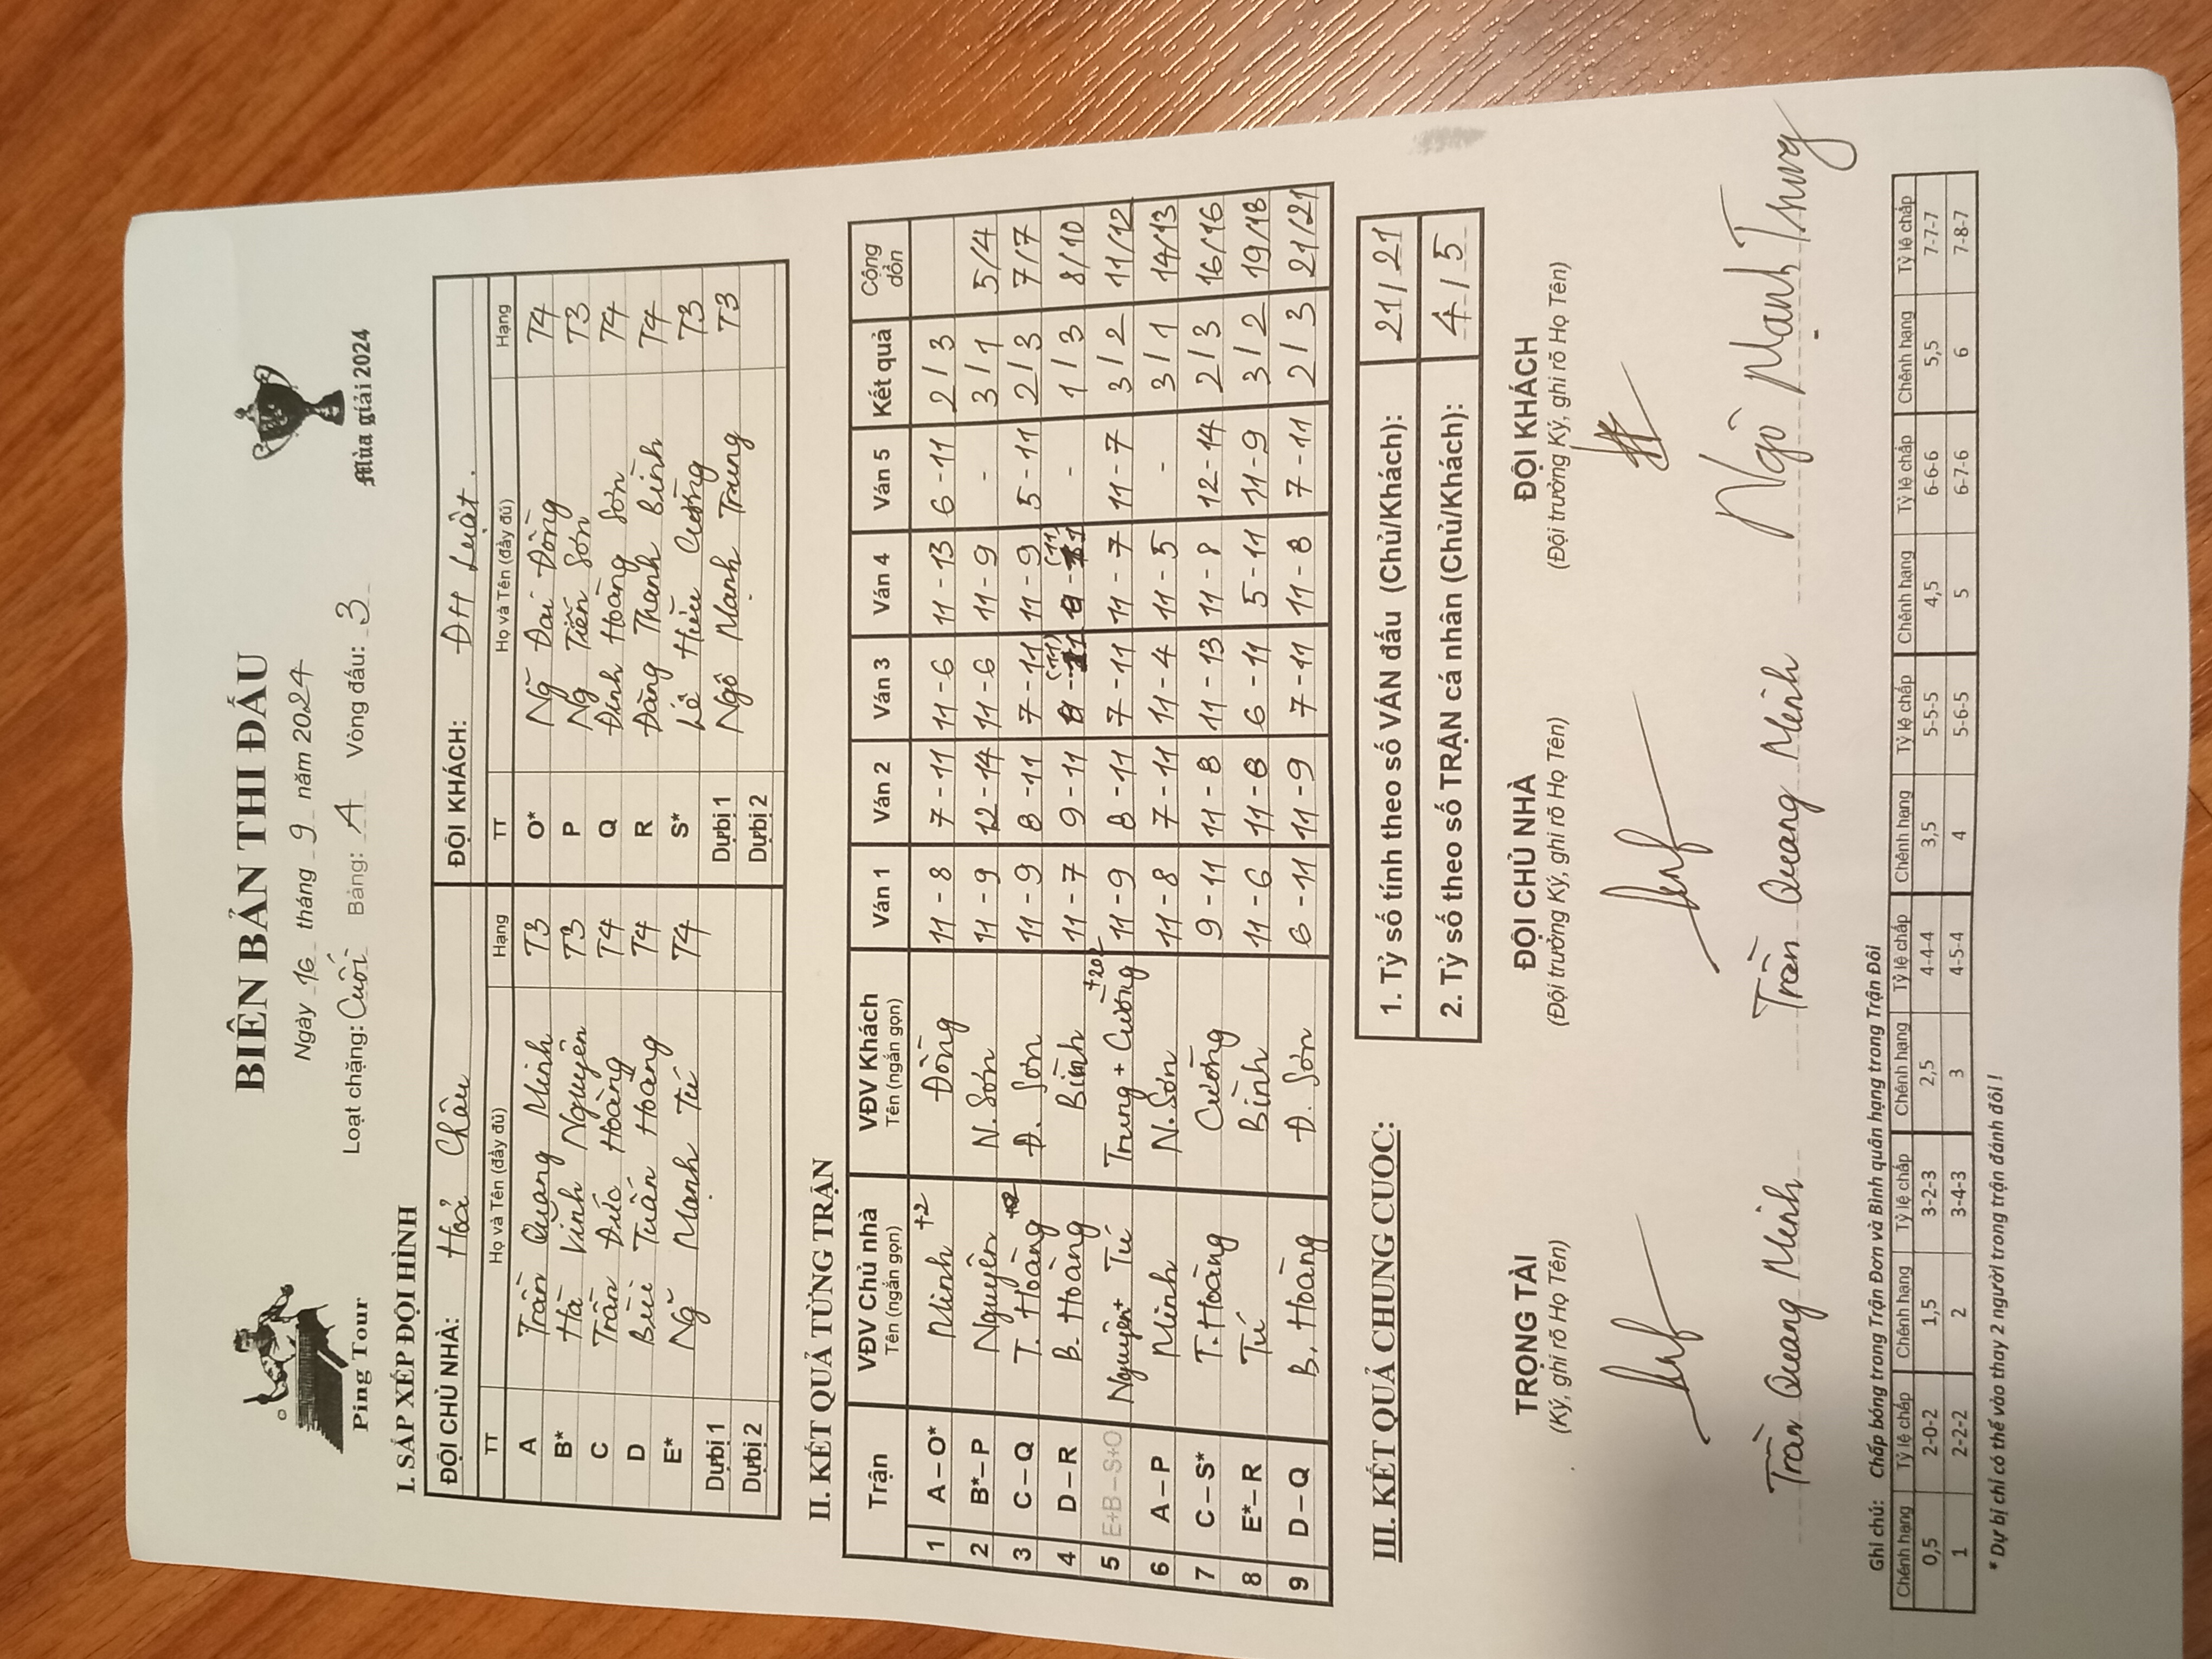 BIÊN BẢN THI ĐẤU
Ngày 16 tháng 9 năm 2024
Ping Tour
Loạt chặng: Cuối Bảng: A Vòng đấu: 3
Mùa giải 2024
I. SẮP XẾP ĐỘI HÌNH
ĐỘI CHỦ NHÀ: Hoả Châu ĐỘI KHÁCH: ĐH Luật.
TT Họ và Tên (đầy đủ) Hạng TT Họ và Tên (đầy đủ) Hạng
A Trần Quang Minh T3 O* Ng~ Đai Đồng T4
B* Hà Vĩnh Nguyên T3 P Ng Tiến Sơn T3
C Trần Đức Hoàng T4 Q Đinh Hoàng Sơn T4
D Bùi Tuấn Hoàng T4 R Đàng Thanh Bình T4
E* Ng~ Mạnh Tú T4 S* Lê Hữu Cường T3
Dự bị 1 Dự bị 1 Ngô Mạnh Trung T3
Dự bị 2 Dự bị 2
II. KẾT QUẢ TỪNG TRẬN
Trận VĐV Chủ nhà Tên (ngắn gọn) VĐV Khách Tên (ngắn gọn) Ván 1 Ván 2 Ván 3 Ván 4 Ván 5 Kết quả Cộng dồn
1 A – O* Minh +2 Đồng 11 - 8 7 - 11 11 - 6 11 - 13 6 - 11 2 / 3
2 B*– P Nguyên N. Sơn 11 - 9 12 - 14 11 - 6 11 - 9 - 3 / 1 5/4
3 C – Q T. Hoàng Đ. Sơn 11 - 9 8 - 11 7 - 11 11 - 9 5 - 11 2 / 3 7/7
4 D – R B. Hoàng Bình 11 - 7 9 - 11 (11) (11) - 1 / 3 8/10
5 E+B – S+O Nguyên + Tú Trung + Cường +202 11 - 9 8 - 11 7 - 11 11 - 7 11 - 7 3 / 2 11/12
6 A – P Minh N. Sơn 11 - 8 7 - 11 11 - 4 11 - 5 - 3 / 1 14/13
7 C – S* T. Hoàng Cường 9 - 11 11 - 8 11 - 13 11 - 8 12 - 14 2 / 3 16/16
8 E*– R Tú Bình 11 - 6 11 - 8 6 - 11 5 - 11 11 - 9 3 / 2 19/18
9 D – Q B. Hoàng Đ. Sơn 6 - 11 11 - 9 7 - 11 11 - 8 7 - 11 2 / 3 21/21
III. KẾT QUẢ CHUNG CUỘC:
1. Tỷ số tính theo số VÁN đấu (Chủ/Khách): 21 / 21
2. Tỷ số theo số TRẬN cá nhân (Chủ/Khách): 4 / 5
TRỌNG TÀI ĐỘI CHỦ NHÀ ĐỘI KHÁCH
(Ký, ghi rõ Họ Tên) (Đội trưởng Ký, ghi rõ Họ Tên) (Đội trưởng Ký, ghi rõ Họ Tên)
Trần Quang Minh Trần Quang Minh Ngô Mạnh Trung
Ghi chú: Chấp bóng trong Trận Đơn và Bình quân hạng trong Trận Đôi
Chênh hạng Tỷ lệ chấp Chênh hạng Tỷ lệ chấp Chênh hạng Tỷ lệ chấp Chênh hạng Tỷ lệ chấp Chênh hạng Tỷ lệ chấp Chênh hạng Tỷ lệ chấp
0,5 2-0-2 1,5 3-2-3 2,5 4-4-4 3,5 5-5-5 4,5 6-6-6 5,5 7-7-7
1 2-2-2 2 3-4-3 3 4-5-4 4 5-6-5 5 6-7-6 6 7-8-7
* Dự bị chỉ có thể vào thay 2 người trong trận đánh đôi !